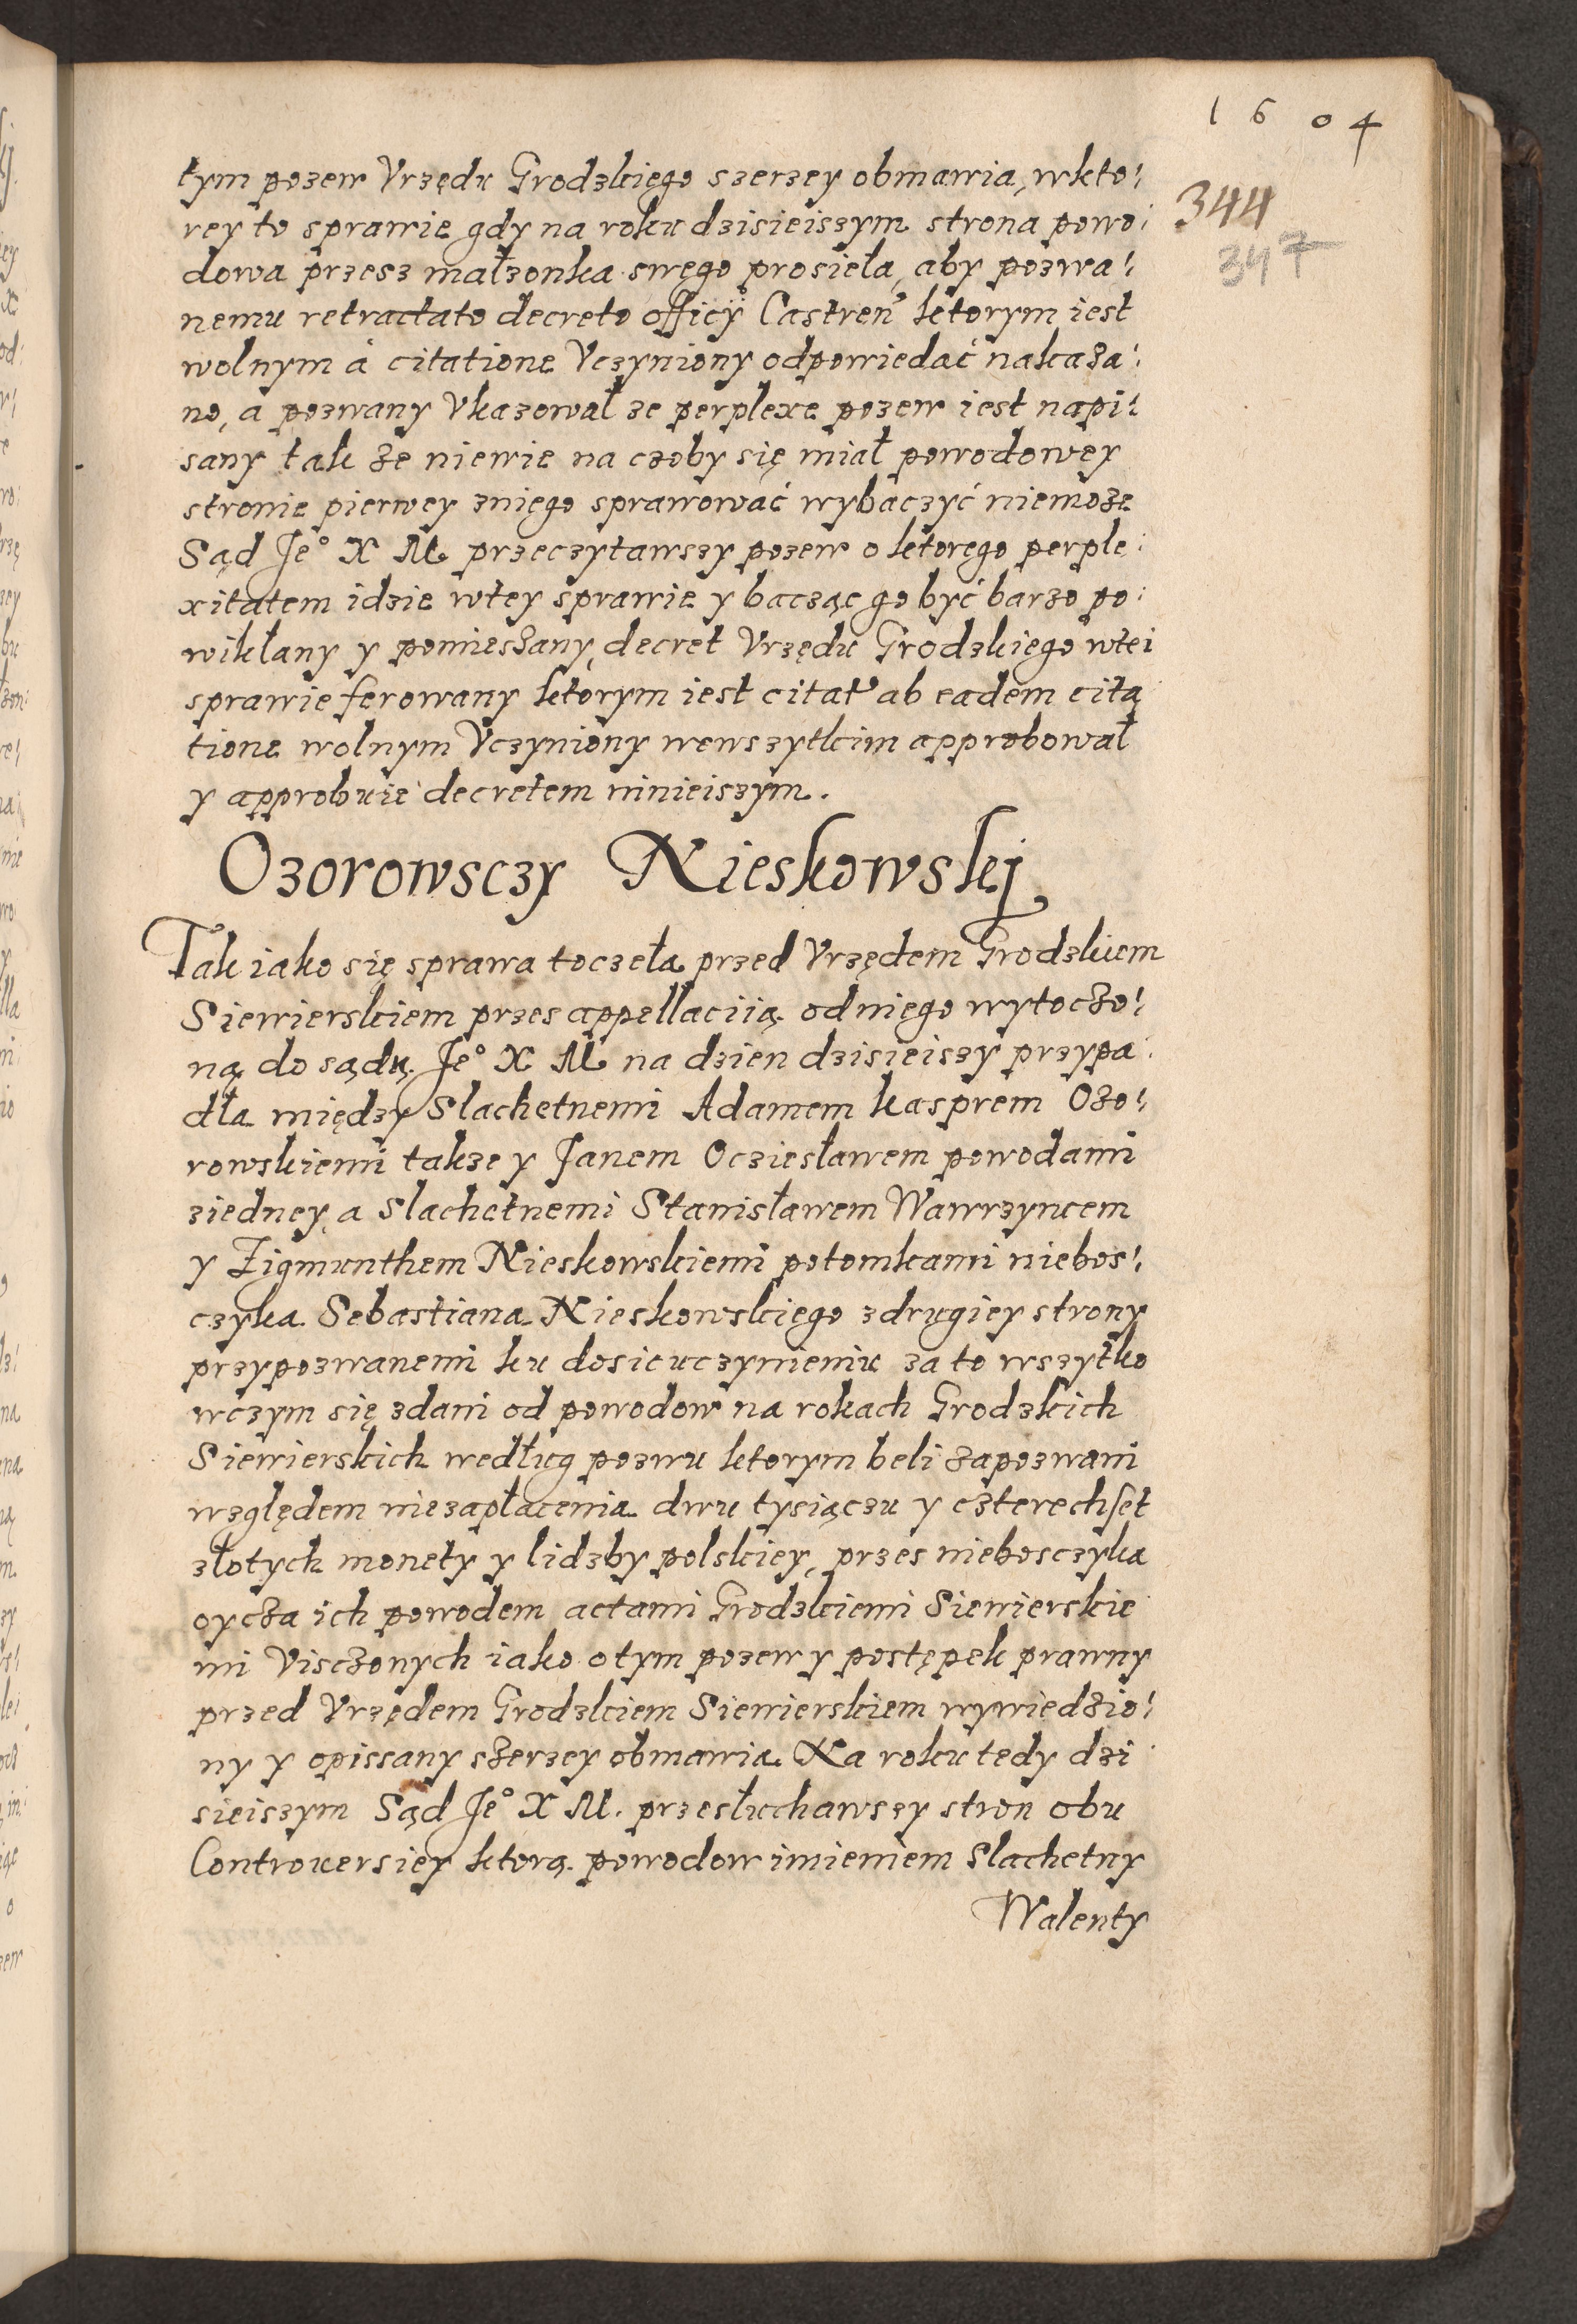 1604
344
347
tym pozew Vrzędu Grodzkięgo szerzey obmawia, wkto:
rey to sprawie gdy na roku dzisieiszym strona powo:
dowa przesz małzonka swęgo prosieła, aby pozwa:
nemu retractato decreto officÿ Castren̄ ktorym iest
wolnym á citatione Vczyniony odpowiedać nakaza:
no, a pozwany Vkazował ze perplexe pozew iest napi:
sany tak że niewie na czoby się miał powodowey
stronie pierwey znięgo sprawować wybaczyć niemoże
Sąd Je° X M przeczytawszy pozew o ktorego perple:
xitatem idzie wtey sprawie y bacząc go być barzo po:
wikłany y pomieszany, decret Vrzędu Grodzkiego wtei
sprawie ferowany ktorym iest citat9 ab eadem cita
tione wolnym Vczyniony wewszytkim approbował
y approbuie decretem ninieiszym.
Ozorowsczy Nieskowskij
Tak iako się sprawa toczeła przed Vrzędem Grodzkiem
Siewierskiem przes appellaciią od niego wytoczo:
ną do sądu Je° X M na dzien dzisieiszy przypa:
dła między Slachetnemi Adamem kasprem Ozo:
rowskiemi takze y Janem Ocziesławem powodami
ziedney, a Slachetnemi Stanisławem Wawrzyncem
y Zigmunthem Nieskowskiemi potomkami niebos:
czyka Sebastiana Nieskowskięgo zdrugiey strony
przypozwanemi ku dosicuczynieniu za to wszytko
wczym się zdani od powodow na rokach Grodzkich
Siewierskich według pozwu ktorym beli zapozwani
względem niezapłacenia dwu tysiączu y czterechset
złotych monety y lidzby polskiey, przes niebosczyka
oycza ich powodem actami Grodzkiemi Siewierskie
mi Visczonych iako otym pozew y postępek prawny
przed Vrzędem Grodzkiem Siewierskiem wywiedzio:
ny y opissany szerzey obmawia. Na roku tedy dzi
sieiszym Sąd Je° X M. przesłuchawszy stron obu
Controuersiey ktorą powodow imieniem Slachetny
Walenty